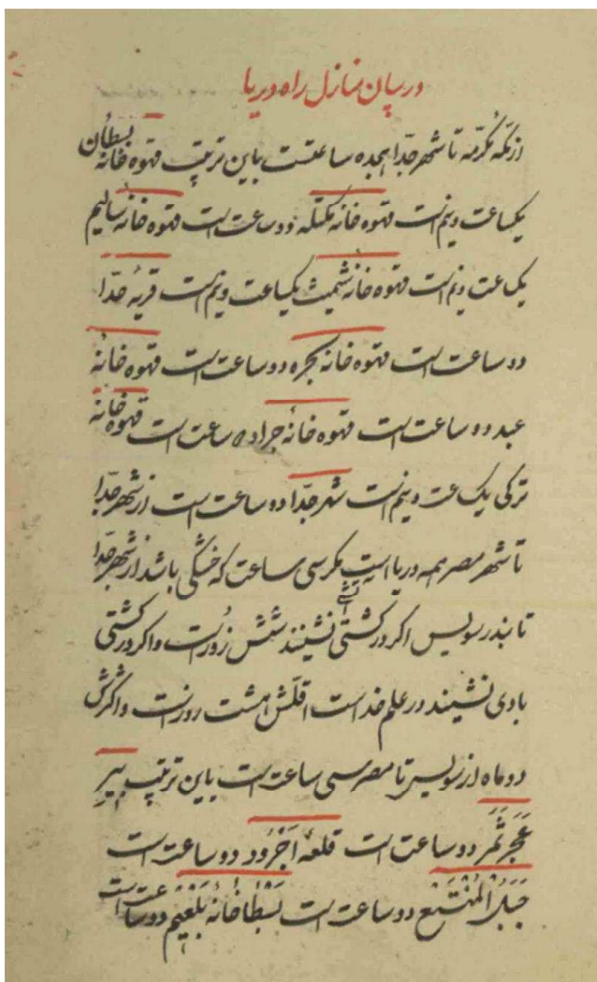 در بیان منازل راه دریا
از مکه مکرمه تا شهر جدا هجده ساعتست باین ترتیب قهوه خانه بسطان
یکساعت و نیم است قهوه خانه مکتله دو ساعت است قهوه خانه سالیم
یکساعت و نیم است قهوه خانه شمیث یکساعت و نیم است قریه حدا
دو ساعت است قهوه خانه بحره دو ساعت است قهوه خانهٔ
عبد دو ساعت است قهوه خانهٔ جراده ساعت است قهوه خانه
ترکی یک ساعت و نیم است شهر جدا دو ساعت است از شهر جدا
تا شهر مصر همه دریا است مکر سی ساعت که خشکی باشد از شهر جدا
تا بندر سویس اکر در کشتی نشینند شش روز است و اکر در کشتی
بادی نشینند در علم خداست اقلش هشت روز است و اکثرش
دو ماه از سویس تا مصر سی ساعت است باین ترتیب بیر
عجرثمر دو ساعت است قلعه اجرود دو ساعت است
جبل المنتبع دو ساعت است بسطاخانه بلغیم دو ساعت است